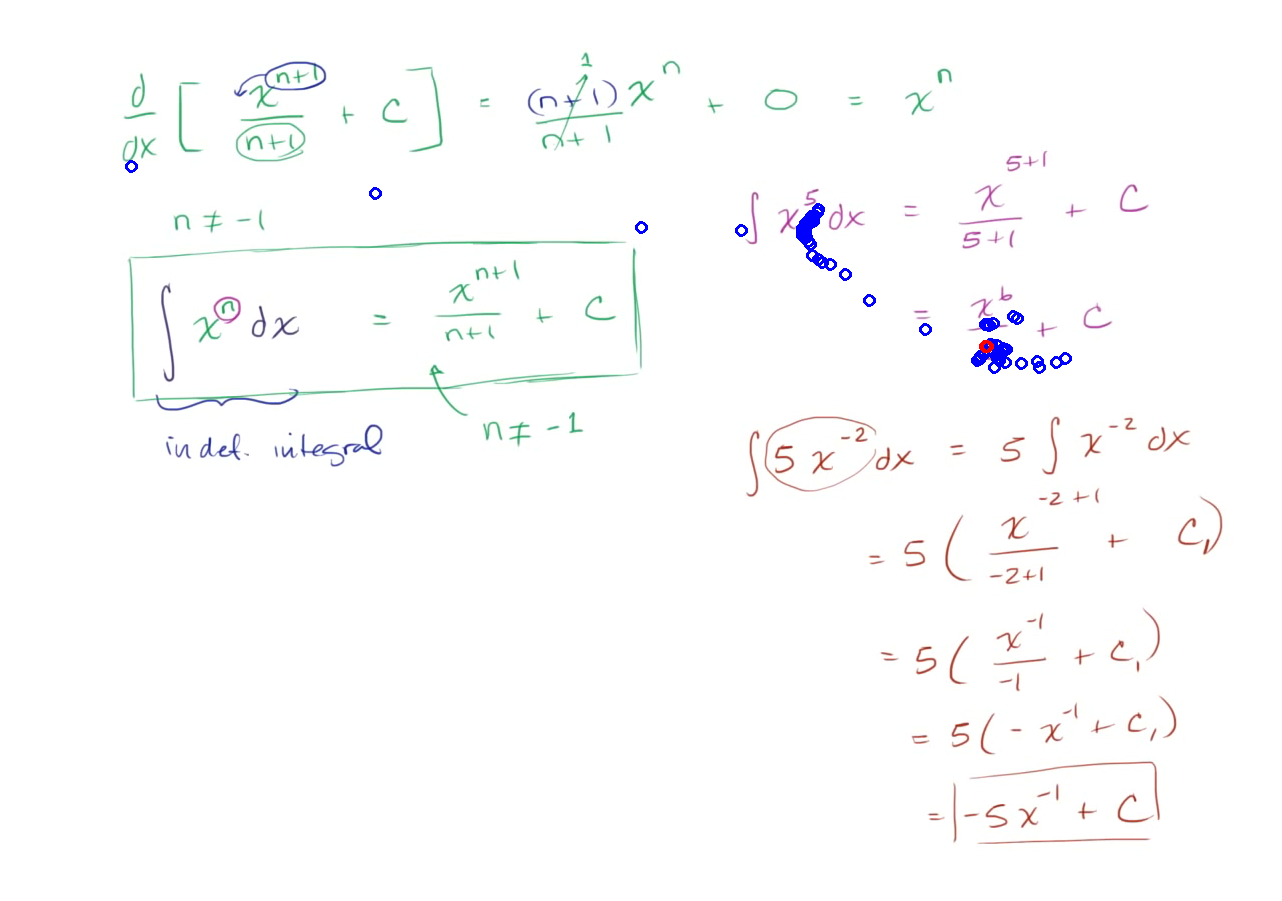 d/dx [ x^(n+1)/(n+1) + C ] = (n+1)x^n/(n+1) 1 + 0 = x^n
n ≠ -1
∫ x^n dx = x^(n+1)/(n+1) + C
n ≠ -1
indef. integral
∫ x^5 dx = x^(5+1)/(5+1) + C
= x^6 + C
∫ 5 x^(-2) dx = 5 ∫ x^(-2) dx
= 5 ( x^(-2+1)/(-2+1) + C₁)
= 5 ( x^(-1)/(-1) + C₁)
= 5 ( - x^(-1) + C₁)
= -5x^(-1) + C